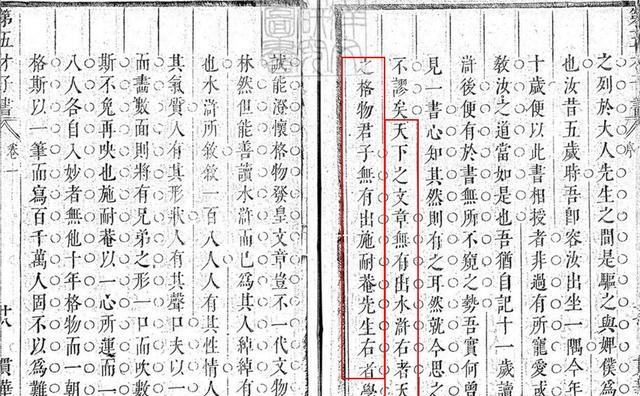 序
之列於大人先生之間是驅之與婢僕爲
也汝昔五歲時吾卽容汝出坐一隅今年
十歲便以此書相授者非過有所寵愛或
敎汝之道當如是也吾猶自記十一歲讀
滸後便有於書無所不窺之勢吾實何曾
見一書心知其然則有之耳然就今思之
不謬矣天下之文章無有出水滸右者天
之格物君子無有出施耐菴先生右者學
誠能澄懷格物發皇文章豈不一代文物
林然但能善讀水滸而已爲其人綽綽有
也水滸所敘敘一百八人人有其性情人
其氣質人有其形狀人有其聲口夫以一
而畵數面則將有兄弟之形一口而吹數
斯不免再吷也施耐菴以一心所運而一
八人各自入妙者無他十年格物而一朝
格斯以一筆而寫百千萬人固不以爲難
第五才子書 卷一 廿八 貫華